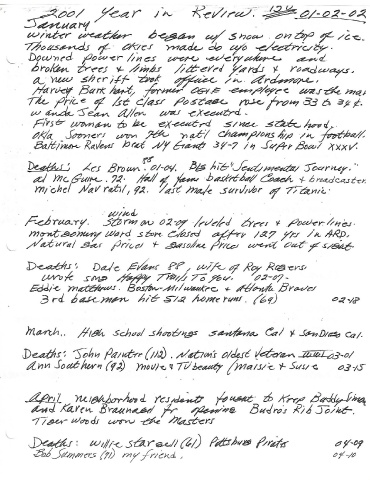 2001 Year in Review. 01-02-02
January
winter weather began w/ snow on top of ice.
Thousands of okies made do w/o electricity.
Downed power lines were everywhere and
broken trees & limbs littered yards & roadways.
a new sheriff took office in Ardmore.
Harvey Burkhart, former OG&E employee was the man
The price of 1st class postage rose from 33 to 34¢.
wanda Jean Allen was executed.
First woman to be executed since statehood.
Okla Sooners won 7th natl championship in football.
Baltimore Ravens beat NY Giants 34-7 in Super Bowl XXXV.
Deaths: Les Brown 01-04. Big hit "Sentimental Journey."
al McGuire. 72. Hall of fame basketball coach & broadcaster
michel Navratil, 92. last male survivor of Titanic.
wind
February. Storm 02-09 leveled trees & power lines.
montgomery ward store closed after 127 yrs in ARD.
Natural Gas prices & Gasoline price went out of sight
Deaths: Dale Evans 88, wife of Roy Rogers
wrote song Happy Trails To You. 02-07-
Eddie matthews. Boston-Milwaukee & Atlanta Braves
3rd baseman hit 512 home runs. (69) 02-18
March. High school shootings santana Cal & San Diego Cal.
Deaths: John Painter (112). Nation's oldest veteran 03-01
Ann Southern (92) movie & TV beauty / maisie & Susie 03-15
April neighborhood residents fought to keep Buddy Sims
and Karen opening Budro's Rib Joint.
Tiger woods won the Masters
Deaths: willie stargell (61) Pittsburg Pirates 04-09
Bob Summers (71) my friend. 04-10